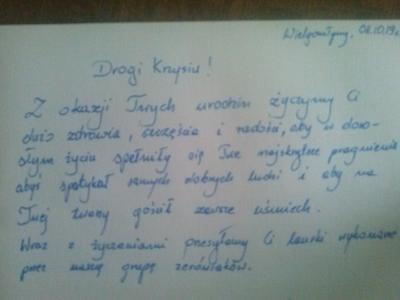 Wielgomłyny, 08.10.19r.
Drogi Krzysiu!
Z okazji Twych urodzin życzymy Ci
dużo zdrowia, szczęścia i radości, aby w doro-
słym życiu spełniły się Twe najskrytsze pragnienia
abyś spotykał samych dobrych ludzi i aby na
Twej twarzy gościł zawsze uśmiech.
Wraz z życzeniami przesyłamy Ci laurki wykonane
przez naszą grupę zerówiaków.